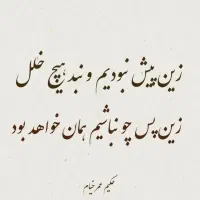 زین پیش نبودیم و نبد هیچ خلل
زین پس چو نباشیم همان خواهد بود
حکیم عمر خیام